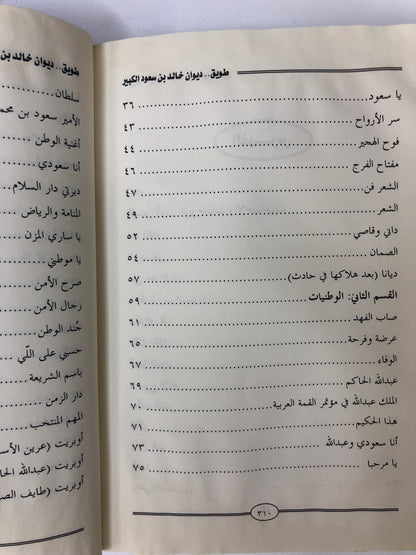 طويق.. ديوان خالد بن سعود الكبير
يا سعود ٣٦
سر الأرواح ٤٣
فوح الهجير ٤٤
مفتاح الفرج ٤٦
الشعر فن ٤٧
الشعر ٤٩
داني وقاصي ٥٢
الصمان ٥٤
ديانا (بعد هلاكها في حادث) ٥٧
القسم الثاني: الوطنيات ٥٩
صاب الفهد ٦١
عرضة وفرحة ٦٥
الوفاء ٦٧
عبدالله الحاكم ٦٩
الملك عبدالله في مؤتمر القمة العربية ٧٠
هذا الحكيم ٧١
أنا سعودي وعبدالله ٧٣
يا مرحبا ٧٥
٣١٠
طويق.. ديوان خالد بن
سلطان
الأمير سعود بن محم
أغنية الوطن
أنا سعودي
ديرتي دار السلام
المنامة والرياض
يا ساري المزن
يا موطني
صرح الأمن
رجال الأمن
جُند الوطن
حسبي على اللّي
باسم الشريعة
دار الزمن
المهم المنتخب
أوبريت (عرين الأس
أوبريت (عبدالله الحا
أوبريت (طايف الص